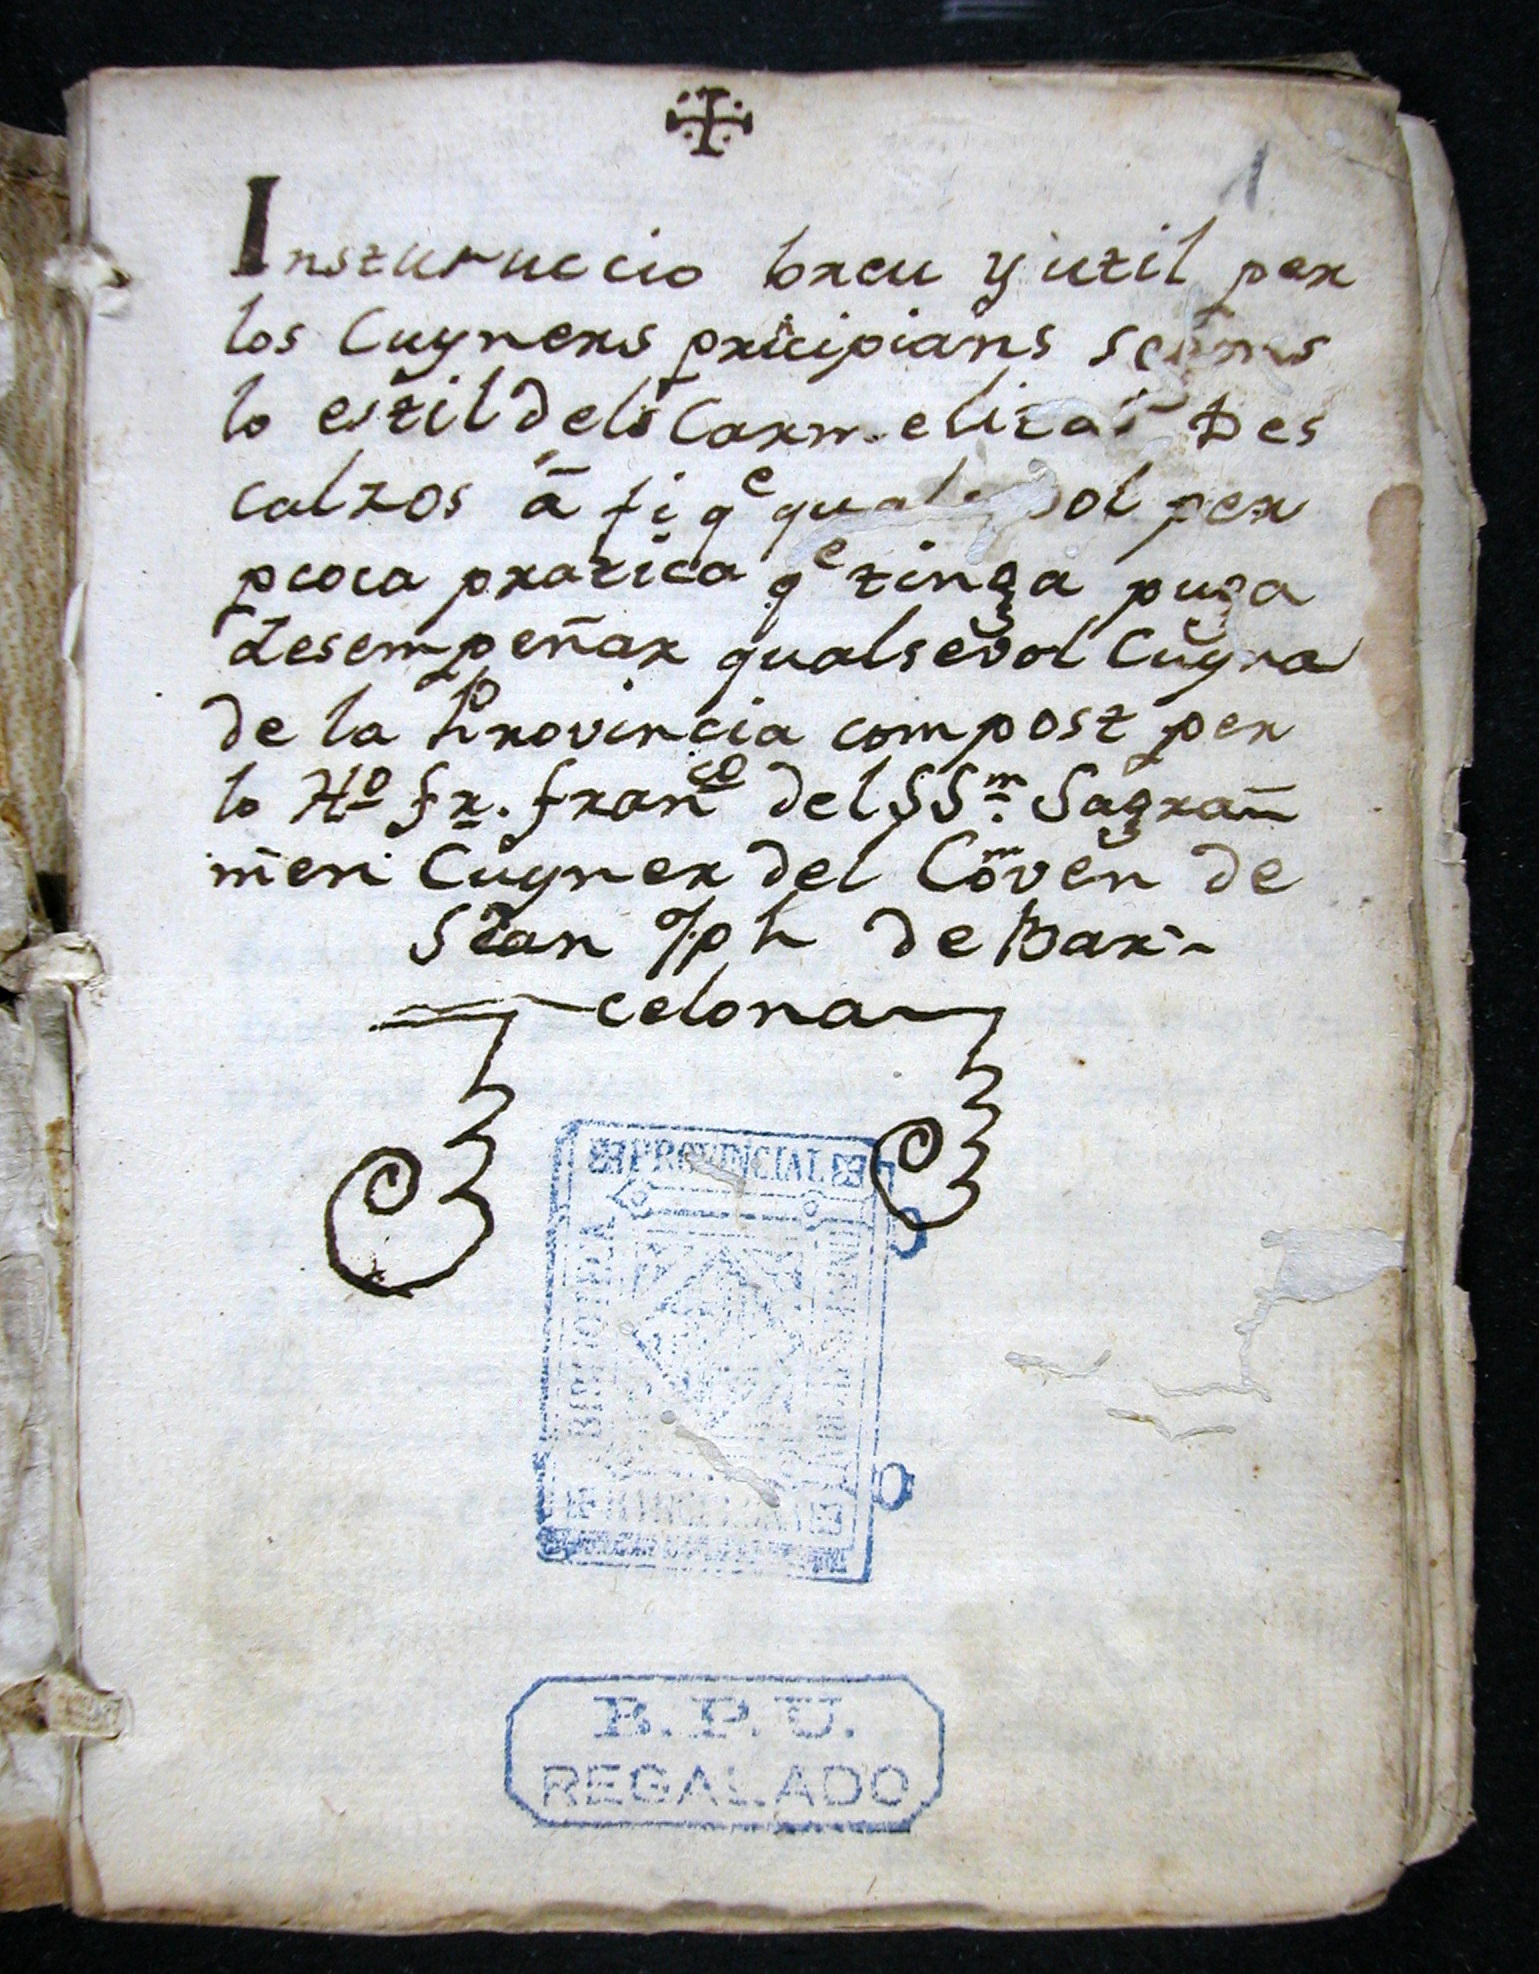 1
Insturuccio breu y util per
los Cuyners pricipians segons
lo estil dels Carmelitas Des
calzos ā fi qᵉ qualsevol per
pcoca pratica qᵉ tinga puga
desempeñar qualsevol Cuyna
de la Provincia compost per
lo Hº fr. franᶜᵒ del SSᵐ. Sagra
men Cuyner del Coven de
San Jph de Bar~
celona
PROVINCIAL
BIBLIOTECA
DE BARCELONA
B.P.U.
REGALADO